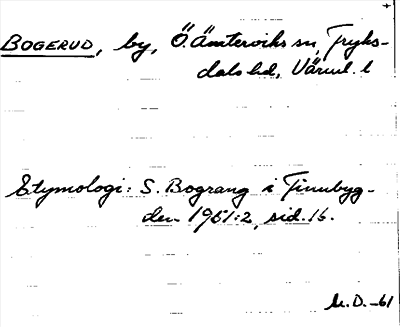 BOGERUD, by, Ö. Ämterviks sn, Fryks-
dals hd, Värml. l
Etymologi: S. Bograng i Finnbyg-
den 1961:2, sid. 16.
M.D.-61